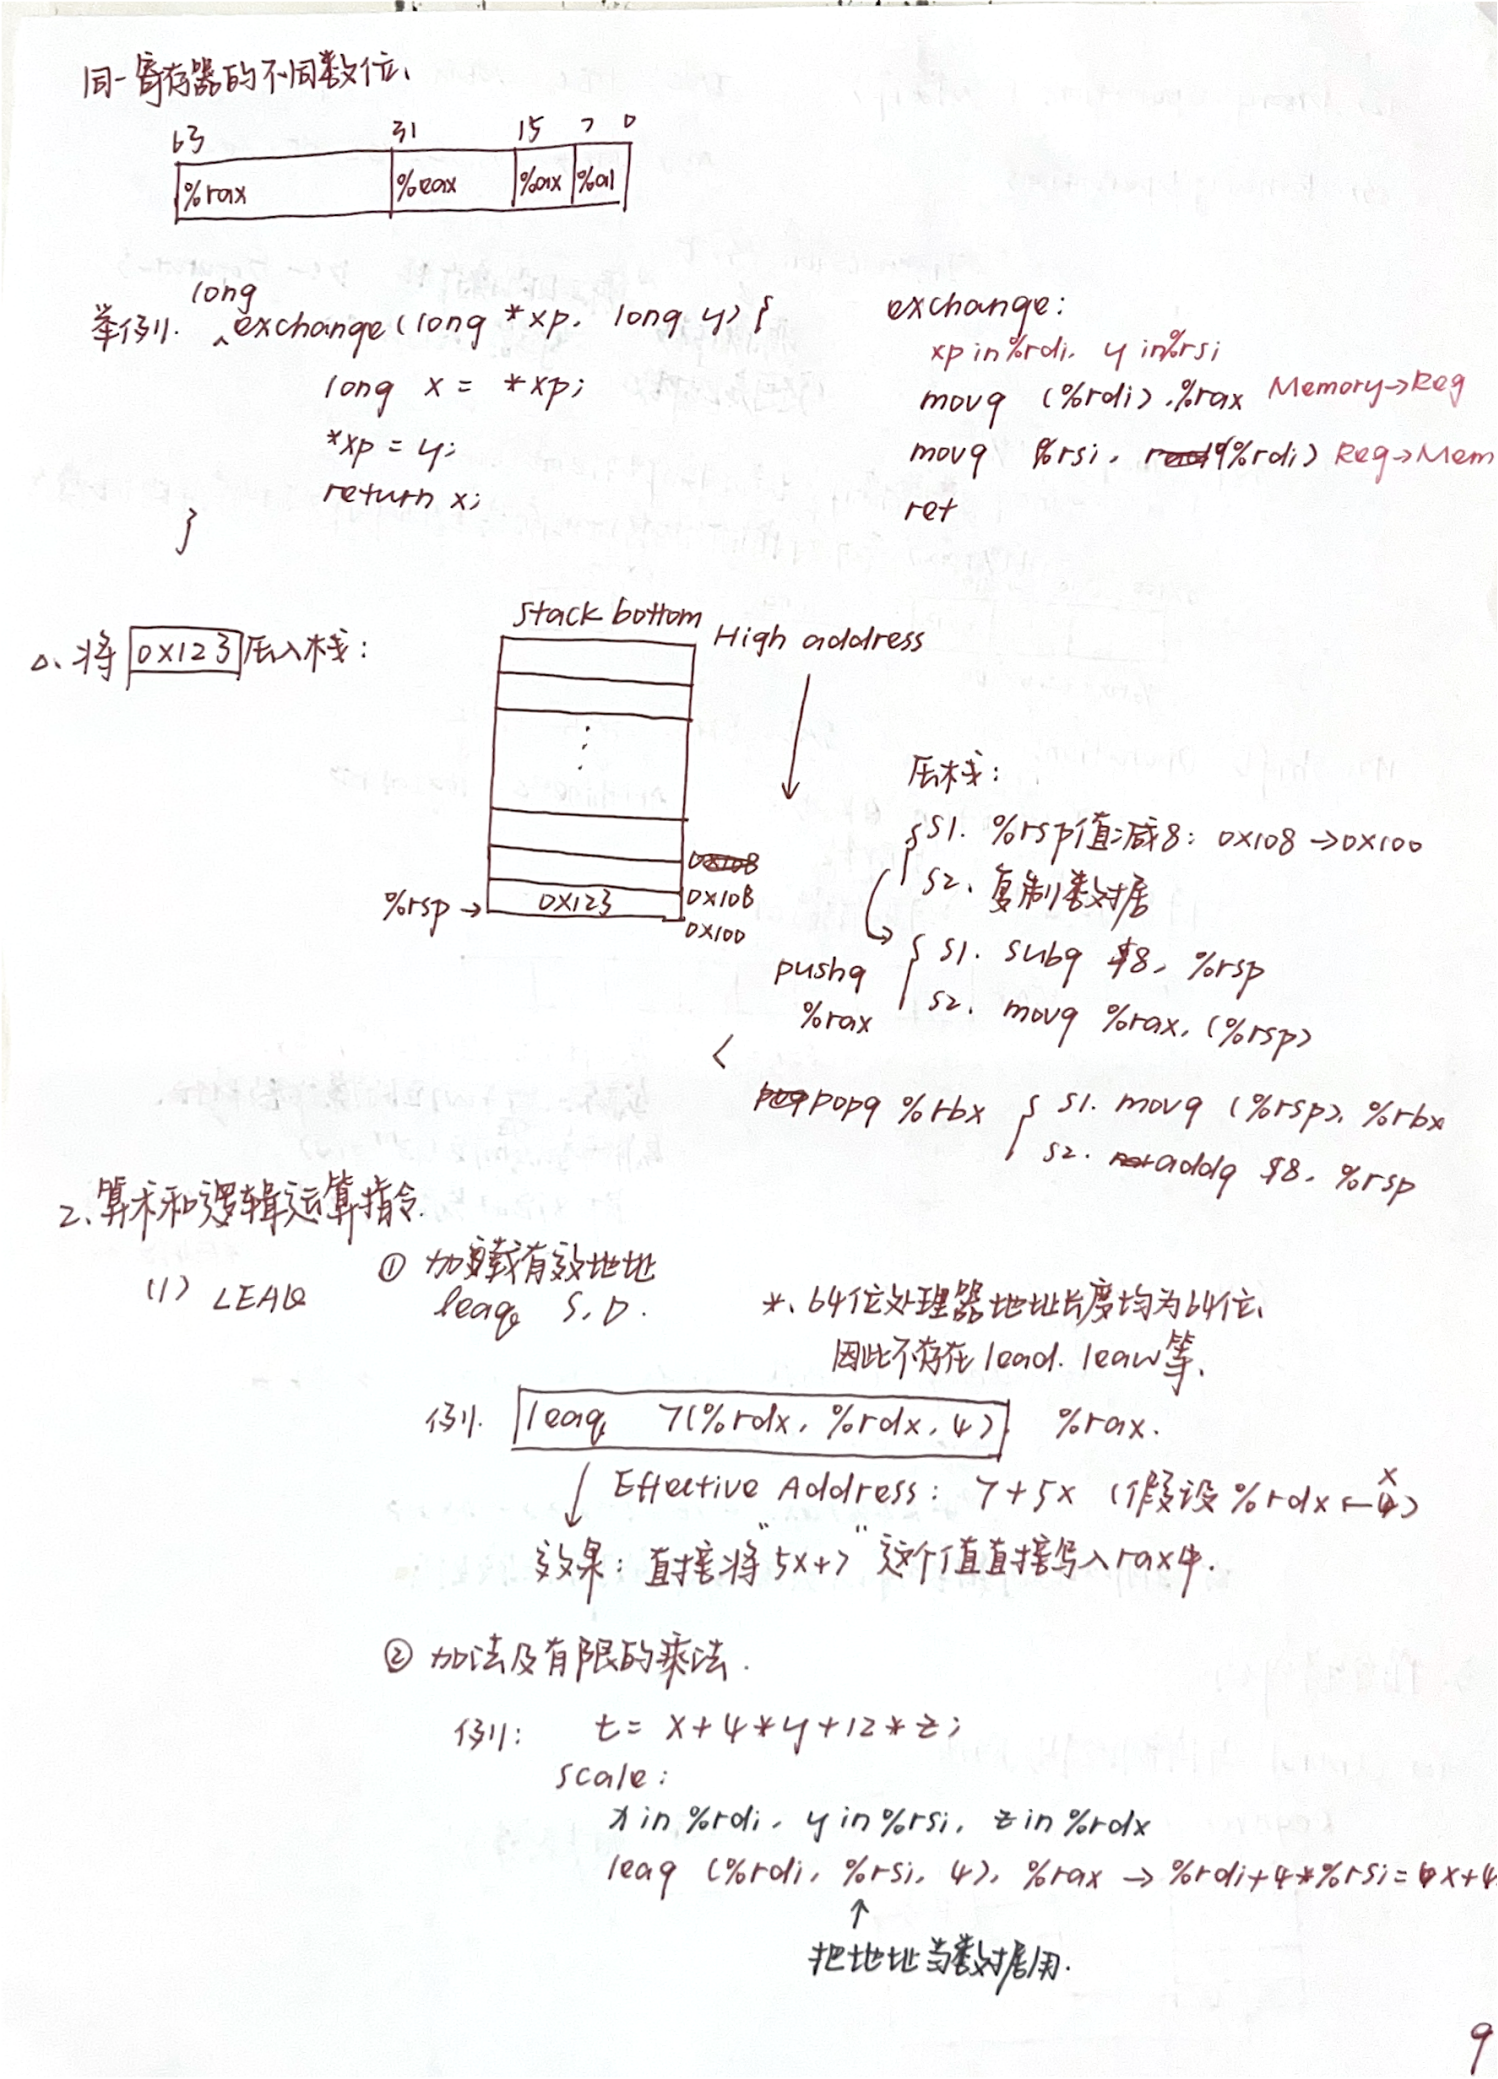 同一寄存器的不同数位、
63 31 15 7 0
%rax %eax %ax %al
举例. long exchange(long *xp, long y) {
long x = *xp;
*xp = y;
return x;
}
exchange:
xp in %rdi, y in %rsi
movq (%rdi), %rax Memory→Reg
movq %rsi, (%rdi) Reg→Mem
ret
△、将 0x123 压入栈:
Stack bottom
High address
0x108
0x108
%rsp → 0x123
0x100
压栈:
S1. %rsp值减8: 0x108→0x100
S2. 复制数据
pushq %rax
S1. subq $8, %rsp
S2. movq %rax, (%rsp)
popq %rbx
S1. movq (%rsp), %rbx
S2. addq $8, %rsp
2、算术和逻辑运算指令.
(1) LEAQ
① 加载有效地址
leaq S, D.
*、64位处理器地址长度均为64位、
因此不存在lead. leaw等、
例. leaq 7(%rdx, %rdx, 4), %rax.
Effective Address: 7+5x (假设%rdx←x)
效果: 直接将"5x+7"这个值直接写入rax中.
② 加法及有限的乘法.
例: t = x+4*y+12*z;
scale:
x in %rdi, y in %rsi, z in %rdx
leaq (%rdi, %rsi, 4), %rax → %rdi+4*%rsi = x+4
↑
把地址当数据用.
9